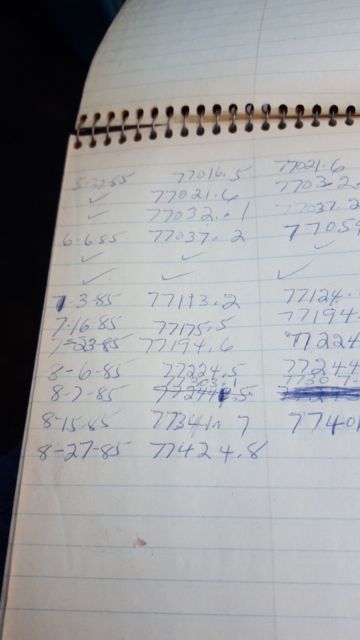 5-30-85 77016.5 77021.6
✓ 77021.6 77032.
✓ 77032.1 77037.2
6-6-85 77037.2 77059
✓ ✓ ✓
✓ ✓ ✓
7-3-85 77113.2 77124.
7-16-85 77175.5 77194.
7-23-85 77194.6 77224
8-6-85 77224.5 77244
8-7-85 77303.1 7730
8-15-85 77341.7 7740
8-27-85 77424.8